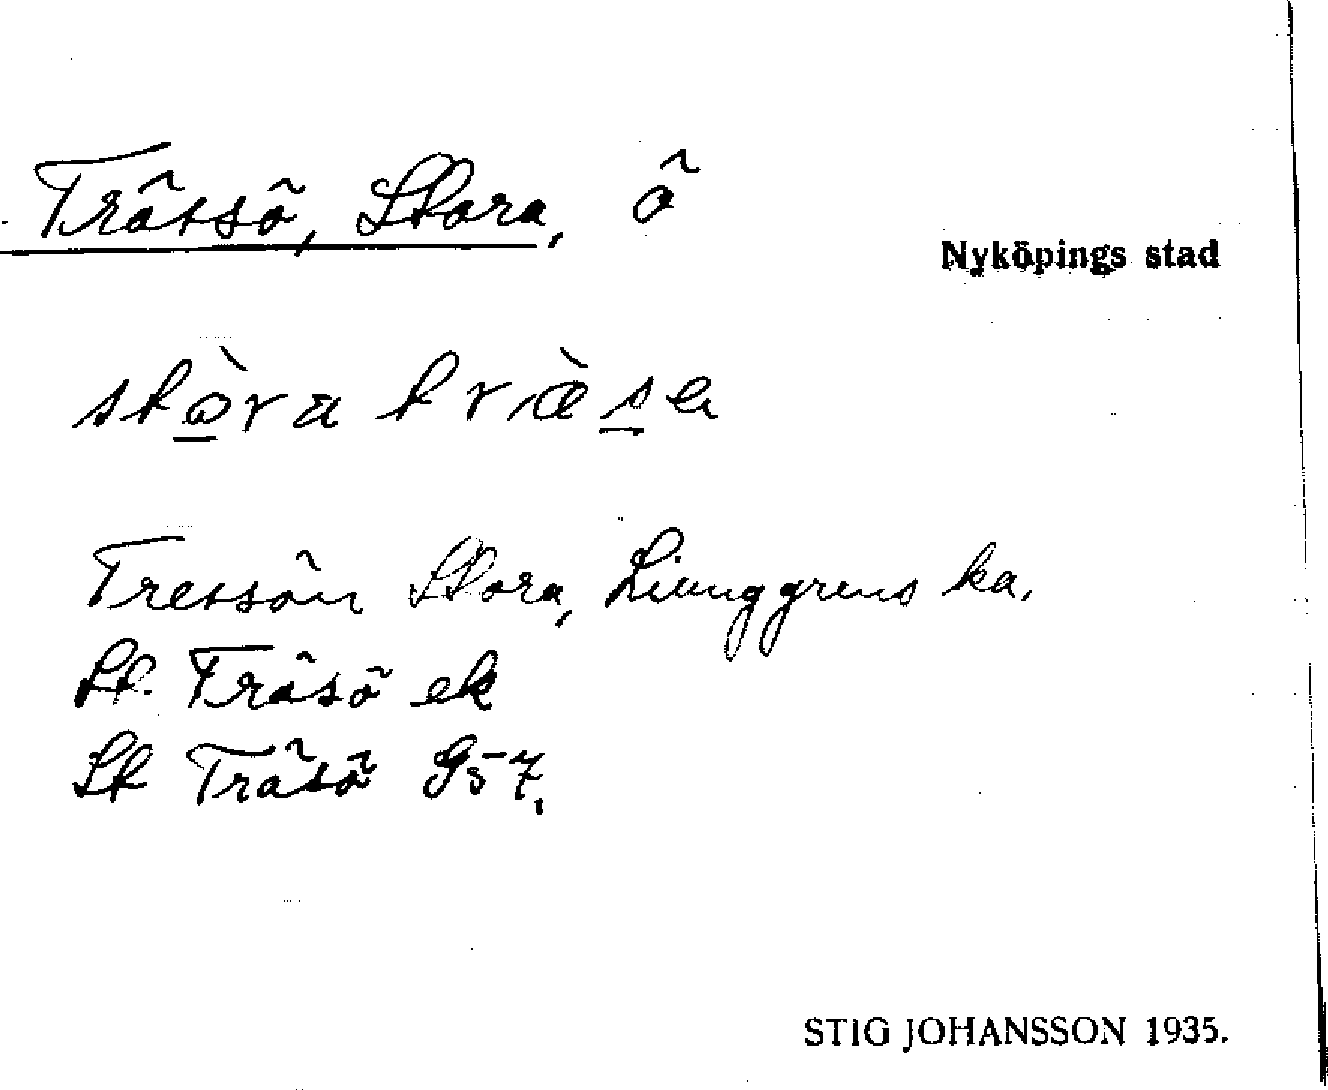 Trässö, Stora, ö
Nyköpings stad
Tressön Stora, Liunggrens ka.
St. Träsö ek
St Träsö G57,
STIG JOHANSSON 1935.